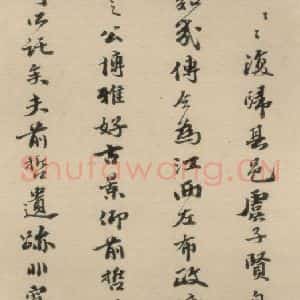 復歸其兄虞子賢
幾傳今為江西左布政
公博雅好古景仰前哲
所託矣夫前哲遺跡非
Shufawang.CN